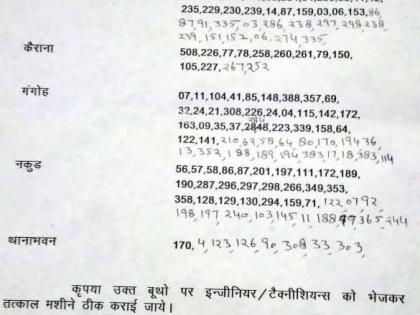 235,229,230,239,14,87,159,03,06,153,86
87,91,335,03,286,238,297,298,238
239,151,152,06,274,335
कैराना
508,226,77,78,258,260,261,79,150,
105,227,267,252
गंगोह
07,11,104,41,85,148,388,357,69,
32,24,21,308,226,24,04,115,142,172,
163,09,35,37,2848,223,339,158,64,
284
122,141,210,62,58,64,80,170,194,36,
13,352,188,189,194,383,17,18,383,114
नकुड
56,57,58,86,87,201,197,111,172,189,
190,287,296,297,298,266,349,353,
358,128,129,130,294,159,71,
198,197,240,103,145,11
थानाभवन
170,4,123,126,90,308,33,303,
कृपया उक्त बूथो पर इन्जीनियर/टैक्नीशियन्स को भेजकर
तत्काल मशीने ठीक कराई जाये।